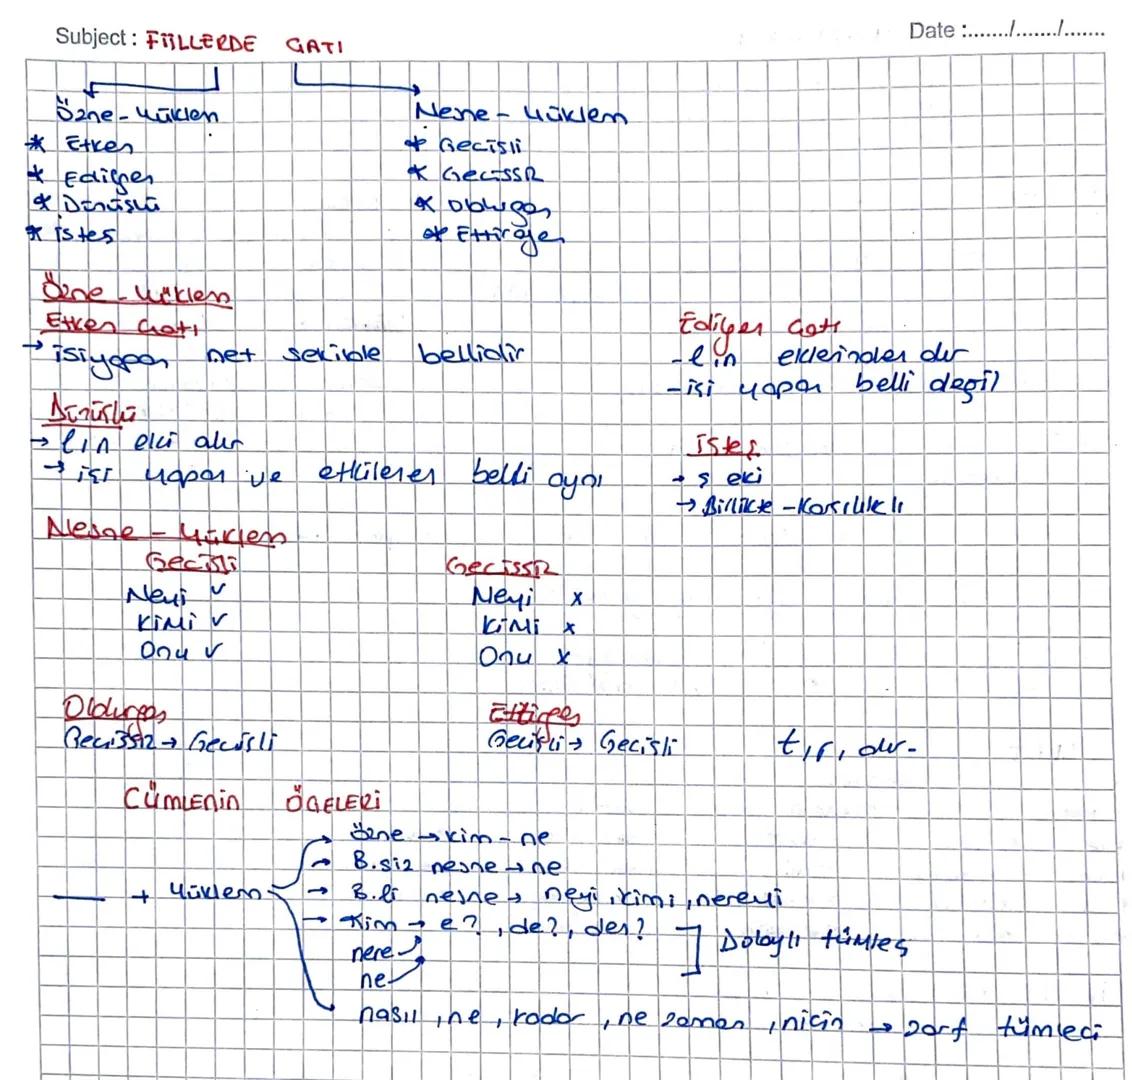 Subject : FİİLLERDE ÇATI
Date :......../......../........
Özne - Yüklem
* Etken
* Edilgen
* Dönüşlü
* İsteş
Nesne - Yüklem
* Geçişli
* Geçissiz
* Oldurgan
* Ettirgen
Özne - Yüklem
Etken Çatı
→ işi yapan net şekilde bellidir
Edilgen Çatı
- l, n eklerinden dir
- işi yapan belli değil
Dönüşlü
→ l, n eki alır
→ işi yapan ve etkilenen belli aynı
İsteş
→ ş eki
→ Birlikte - Karşılıklı
Nesne - Yüklem
Geçişli
Neyi ✓
Kimi ✓
Onu ✓
Geçissiz
Neyi x
Kimi x
Onu x
Oldurgan
Geçissiz → Geçişli
Ettirgen
Geçişli → Geçişli
t, ır, dır-
CÜMLENİN ÖGELERİ
____ + Yüklem
→ Özne → kim - ne
→ B.siz nesne → ne
→ B.li nesne → neyi, kimi, nereyi
→ Kim → e?, de?, den?
nere
ne
] Dolaylı tümleç
nasıl, ne, kadar, ne zaman, niçin → zarf tümleci